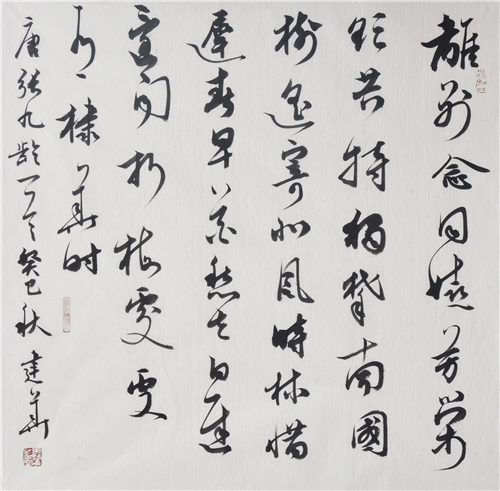 離別念同嬉芬榮
欲共持獨攀南國
樹遙寄北風時林惜
春早花愁去日遲
還聞折梅處更
有棣華時
唐張九齡一首癸巳秋建華